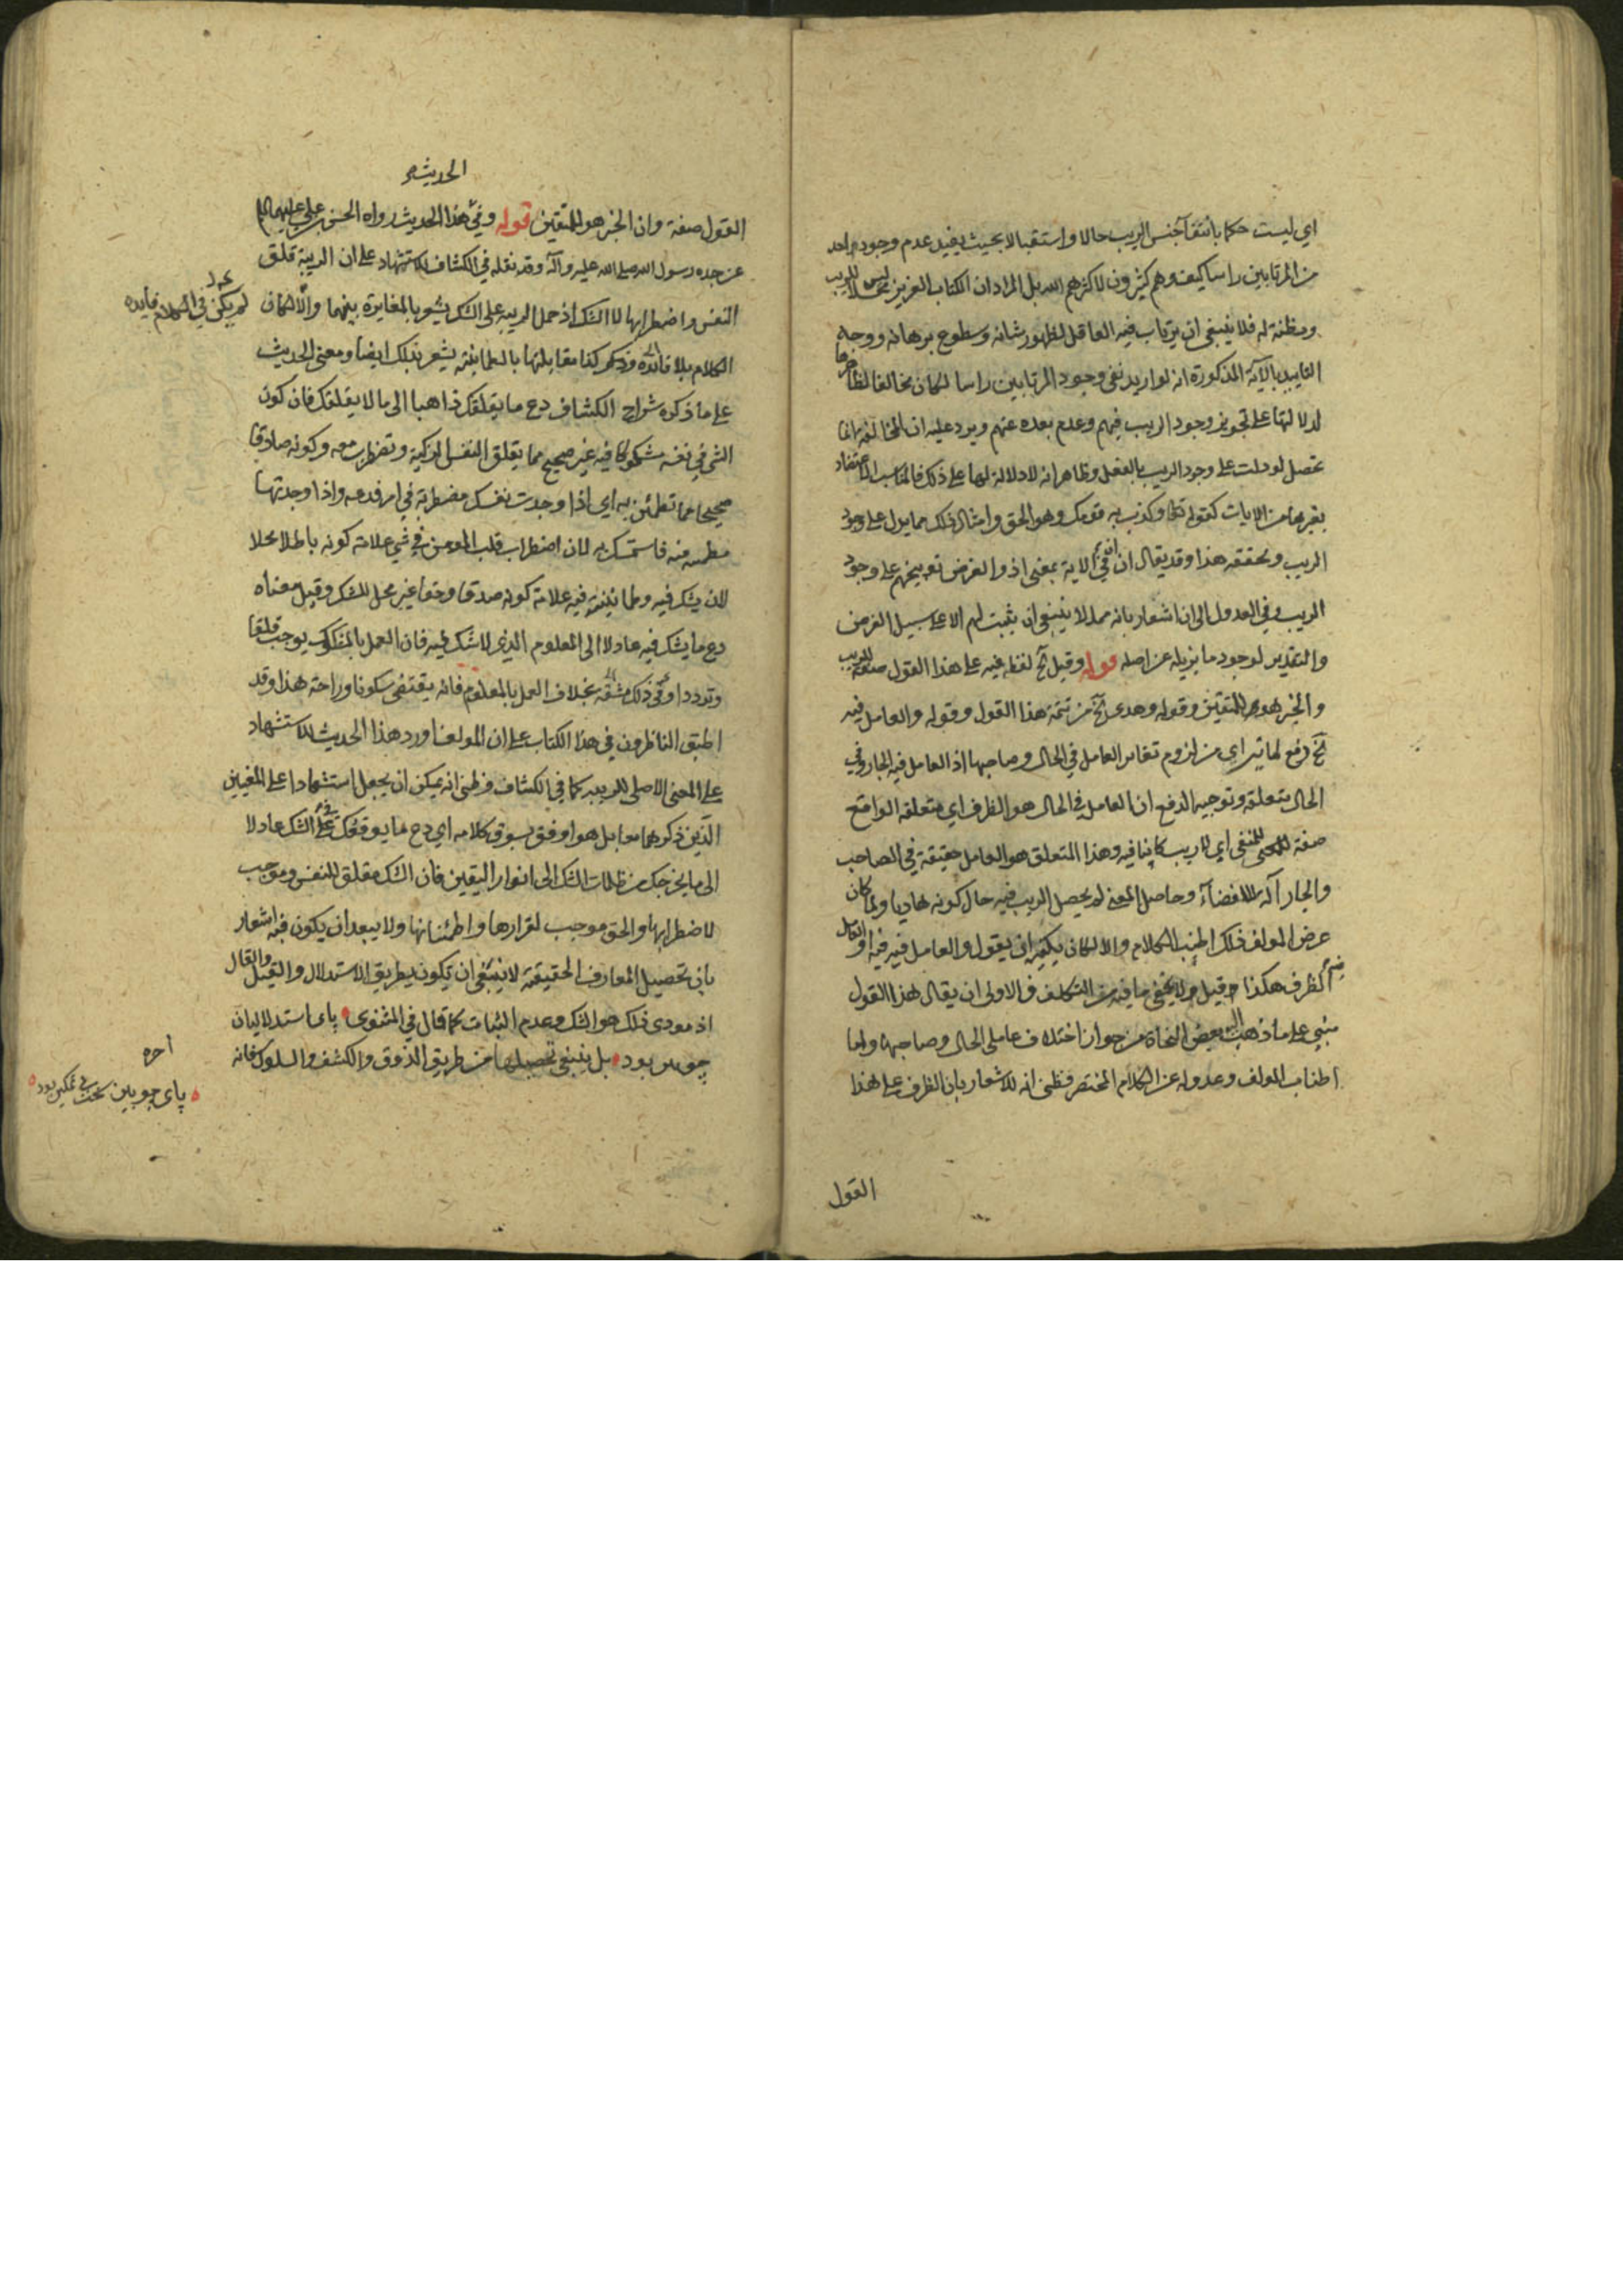 اي ليست حكما بانتفآ جنس الريب حالا واستقبالا بحيث يفيد عدم وجود واحد
من المرتابين راسا كيف وهم كثيرون لا كثرهم الله بل المراد ان الكتاب العزيز ليس محلا للريب
ومظنة له فلا ينبغي ان يرتاب فيه العاقل لظهور شانه وسطوع برهانه ووجه
التاييد بالآية المذكورة انه لو اريد نفي وجود المرتابين راسا لكان مخالفا لظاهرها
لدلالتها على تجويز وجود الريب فيهم وعدم بعده عنهم ويرد عليه ان المخالفة انما
تحصل لو دلت على وجود الريب بالفعل وظاهر انه لا دلالة لها على ذلك فالمناسب الاعتضاد
بغيرها من الايات كقوله تعالى وكذب به قومك وهو الحق وامثال ذلك مما يدل على وجود
الريب وتحققه هذا وقد يقال ان ان في الاية بمعنى اذ والغرض توبيخهم على وجود
الريب وفي العدول الى ان اشعار بانه مما لا ينبغي ان يثبت لهم الا على سبيل الفرض
والتقدير لوجود ما يزيله عن اصله قوله وقيل آخ لفظ فيه على هذا القول صفة للريب
والخبر هو للمتقين وقوله وهدى آخ من تتمة هذا القول وقوله والعامل فيه
آخ دفع لما يتراي من لزوم تغاير العامل في الحال وصاحبها اذ العامل فيه الجار وفي
الحال متعلقه وتوجيه الدفع ان العامل في الحال هو الظرف اي متعلقه الواقع
صفة للمنفي اي لا ريب كاينا فيه وهذا المتعلق هو العامل حقيقة في الصاحب
والجار آلة للافضآء وحاصل المعنى لم يحصل الريب فيه حال كونه هاديا ولما كان
غرض المولف ذلك اطنب الكلام والا لكان يكفيه ان يقول والعامل فيه فيه او العامل
فيه الظرف هكذا قيل ولا يخفى ما فيه من التكلف فالاولى ان يقال هذا القول
مبني على ما ذهب اليه بعض النحاة من جواز اختلاف عاملي الحال وصاحبها واما
اطناب المولف وعدوله عن الكلام المختصر فظني انه للاشعار بان الظرف على هذا
القول
الحديث
القول صفة وان الخبر هو للمتقين قوله وفي الحديث هذا الحديث رواه الحسن بن علي عليهما السلام
عن جده رسول الله صلى الله عليه وآله وقد نقله في الكشاف للاستشهاد على ان الريبة قلق
النفس واضطرابها لا الشك اذ حمل الريبه على الشك يشعر بالمغايرة بينهما والا لكان
لم يكن في الكلام فايده
الكلام بلا فائدة وكذا مقابلتها بالطمانينة يشعر بذلك ايضا ومعنى الحديث
على ما ذكره شراح الكشاف دع ما يقلقك ذاهبا الى ما لا يقلقك فان كون
الشي في نفسه مشكوكا فيه غير صحيح مما يقلق النفس الزكية وتضطرب معه وكونه صادقا
صحيحا مما تطمئن به اي اذا وجدت نفسك مضطربة في امر فدعه واذا وجدتها
مطمئنه فيه فاستمسك به لان اضطراب قلب المومن في شي علامة كونه باطلا محلا
لان يشك فيه وطمانينته فيه علامة كونه صدقا وحقا غير محل للشك وقيل معناه
دع ما يشك فيه عادلا الى المعلوم الذي لا شك فيه فان العمل بالمشكوك يوجب قلقا
وترددا وفي ذلك مشقة بخلاف العمل بالمعلوم فانه يقتضي سكونا وراحة هذا وقد
اطبق الناظرون في هذا الكتاب على ان المولف اورد هذا الحديث للاستشهاد
على المعنى الاصلي للريبه كما في الكشاف وظني انه يمكن ان يجعل استشهادا على المعنيين
الذين ذكرهما معا بل هو اوفق بسوق كلامه اي دع ما يوقعك في الشك عادلا
الى ما يخرجك من ظلمات الشك الى انوار اليقين فان الشك مقلق للنفس وموجب
لاضطرابها والحق موجب لقرارها واطمئنانها ولا يبعد ان يكون فيه اشعار
بان تحصيل المعارف الحقيقة لا ينبغي ان يكون بطريق الاستدلال والقيل والقال
اذ مودى ذلك هو الشك وعدم الثبات كما قال في المثنوي پای استدلالیان
چوبین بود بل ينبغي تحصيلها من طريق الذوق والكشف والسلوك فانه
آخره
پای چوبین سخت بی تمکین بود